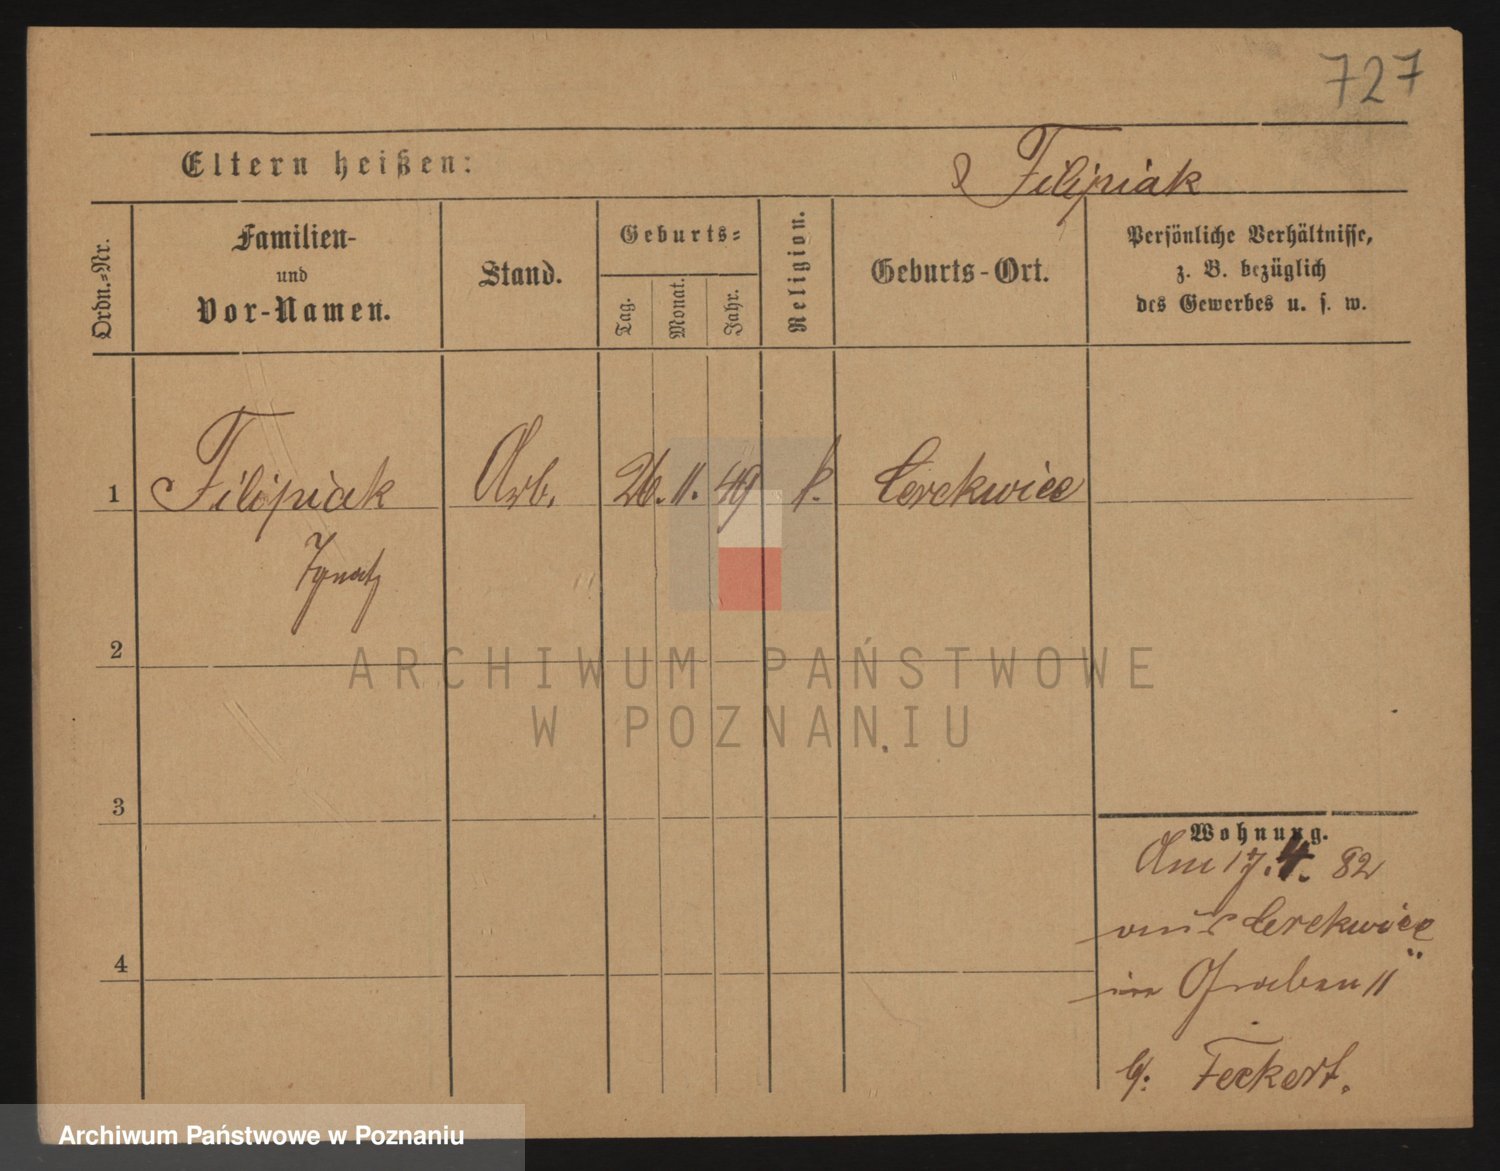 727
Eltern heißen:
Filipiak
Ordn.-Nr.
Familien-
und
Vor-Namen.
Stand.
Geburts-
Tag.
Monat.
Jahr.
Religion.
Geburts-Ort.
Persönliche Verhältnisse,
z. B. bezüglich
des Gewerbes u. s. w.
1 Filipiak Arb. 26. 11. 49 k. Cerekwice
Ignatz
2
3
4
Wohnung.
Am 17. 4. 82
aus Cerekwice
in Graben 11
b/.
ARCHIWUM PAŃSTWOWE
W POZNANIU
Archiwum Państwowe w Poznaniu